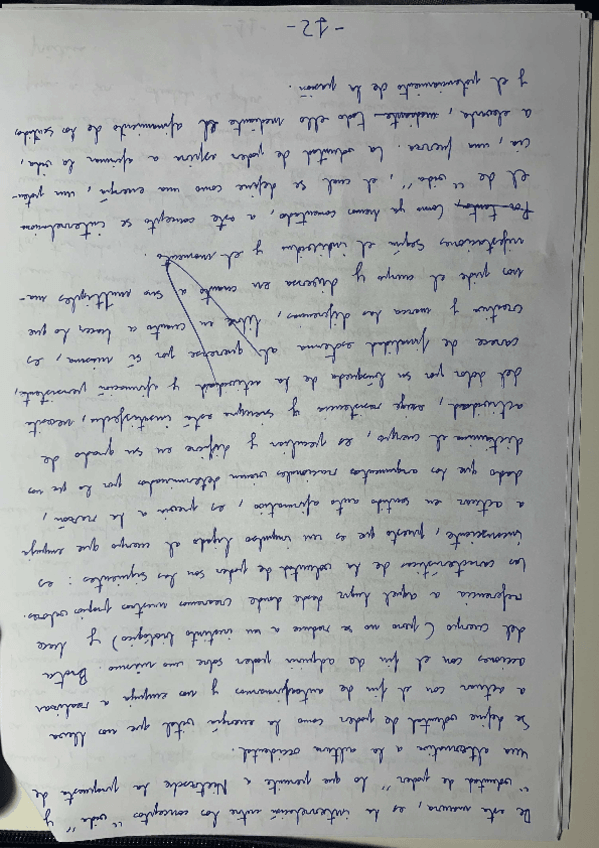 De esta manera, es la interrelación entre los conceptos "vida" y
"voluntad de poder" lo que permite a Nietzsche la propuesta de
una alternativa a la cultura occidental.
Se define voluntad de poder como la energía vital que nos lleva
a actuar con el fin de autoafirmarnos y nos empuja a realizar
acciones con el fin de adquirir poder sobre uno mismo. Brota
del cuerpo (pero no se reduce a un instinto biológico) y hace
referencia a aquel lugar desde donde creamos nuestros propios valores.
Las características de la voluntad de poder son las siguientes: es
inconsciente, puesto que es un impulso ligado al cuerpo que empuja
a actuar en sentido auto afirmativo, es previa a la razón,
dado que los argumentos racionales vienen determinados por lo que nos
dictamina el cuerpo, es peculiar y difiere en su grado de
actividad, exige resistencia y siempre está insatisfecha, necesita
del dolor por su búsqueda de la actividad y afirmación persistente,
carece de finalidad externa al quererse por sí misma, es
creativa y marca los dispares, libre en cuanto a hacer lo que
nos pide el cuerpo y diversa en cuanto a sus múltiples ma-
nifestaciones según el individuo y el momento.
Por tanto, Como ya hemos comentado, a este concepto se interrelaciona
el de "vida", el cual se define como una energía, una poten-
cia, una fuerza. La voluntad de poder aspira a afirmar la vida,
a elevarla, mediante todo ello mediante el afinamiento de los sentidos
y el potenciamiento de la pasión.
-12-